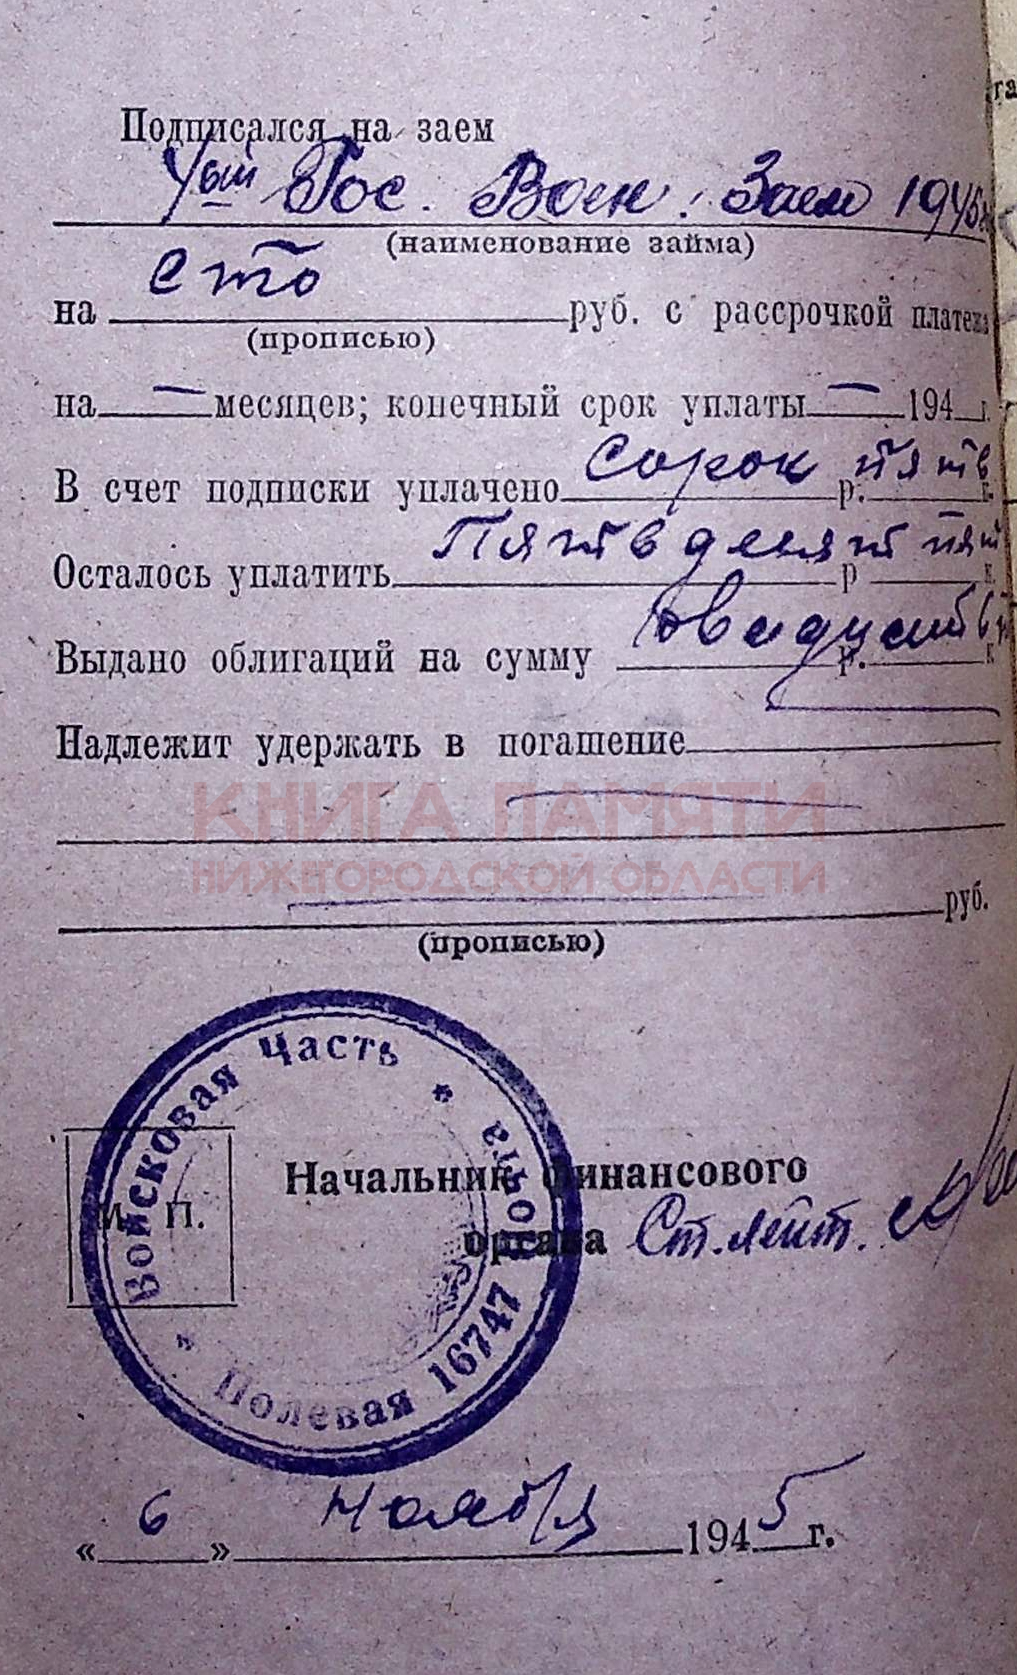 Подписался на заем
4ый Гос. Воен. Заем 1945
(наименование займа)
на сто руб. с рассрочкой платежа
(прописью)
на — месяцев; конечный срок уплаты — 194 г.
В счет подписки уплачено сорок пять р. к.
Осталось уплатить Пятьдесят пят р к.
Выдано облигаций на сумму р. к
Надлежит удержать в погашение
КНИГА ПАМЯТИ
НИЖЕГОРОДСКОЙ ОБЛАСТИ
руб.
(прописью)
Войсковая часть * Полевая почта 16747 *
М. П.
Начальник финансового
органа Ст. лейт.
« 6 » ноября 1945 г.